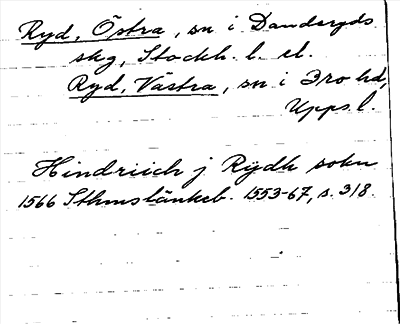 Ryd, Östra, sn i Danderyds
skg, Stockh. l. el.
Ryd, Västra, sn i Bro hd,
Upps. l.
Hindriich j Rydh sokn
1566 Sthmslänkeb. 1553-67, s. 318.